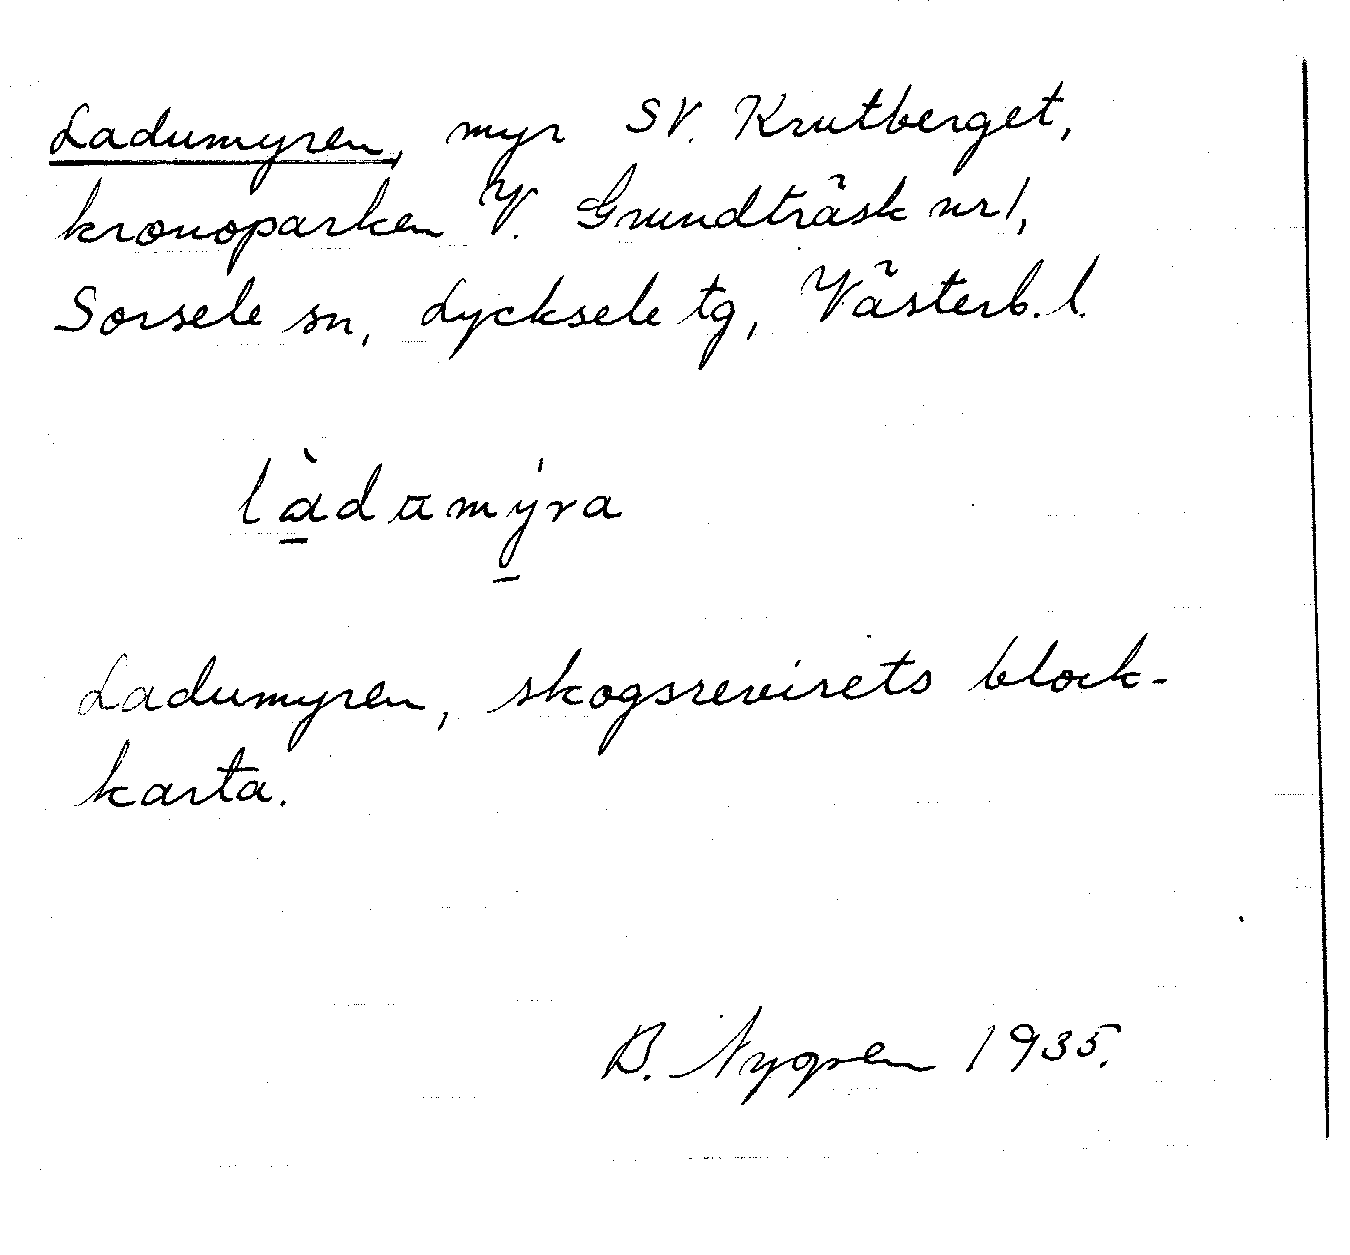 Ladumyren, myr SV. Krutberget,
kronoparken V. Grundträsk nr 1,
Sorsele sn, Lycksele tg, Västerb. l.
làdαmýra
Ladumyren, skogsrevirets block-
karta.
B. Nygren 1935.